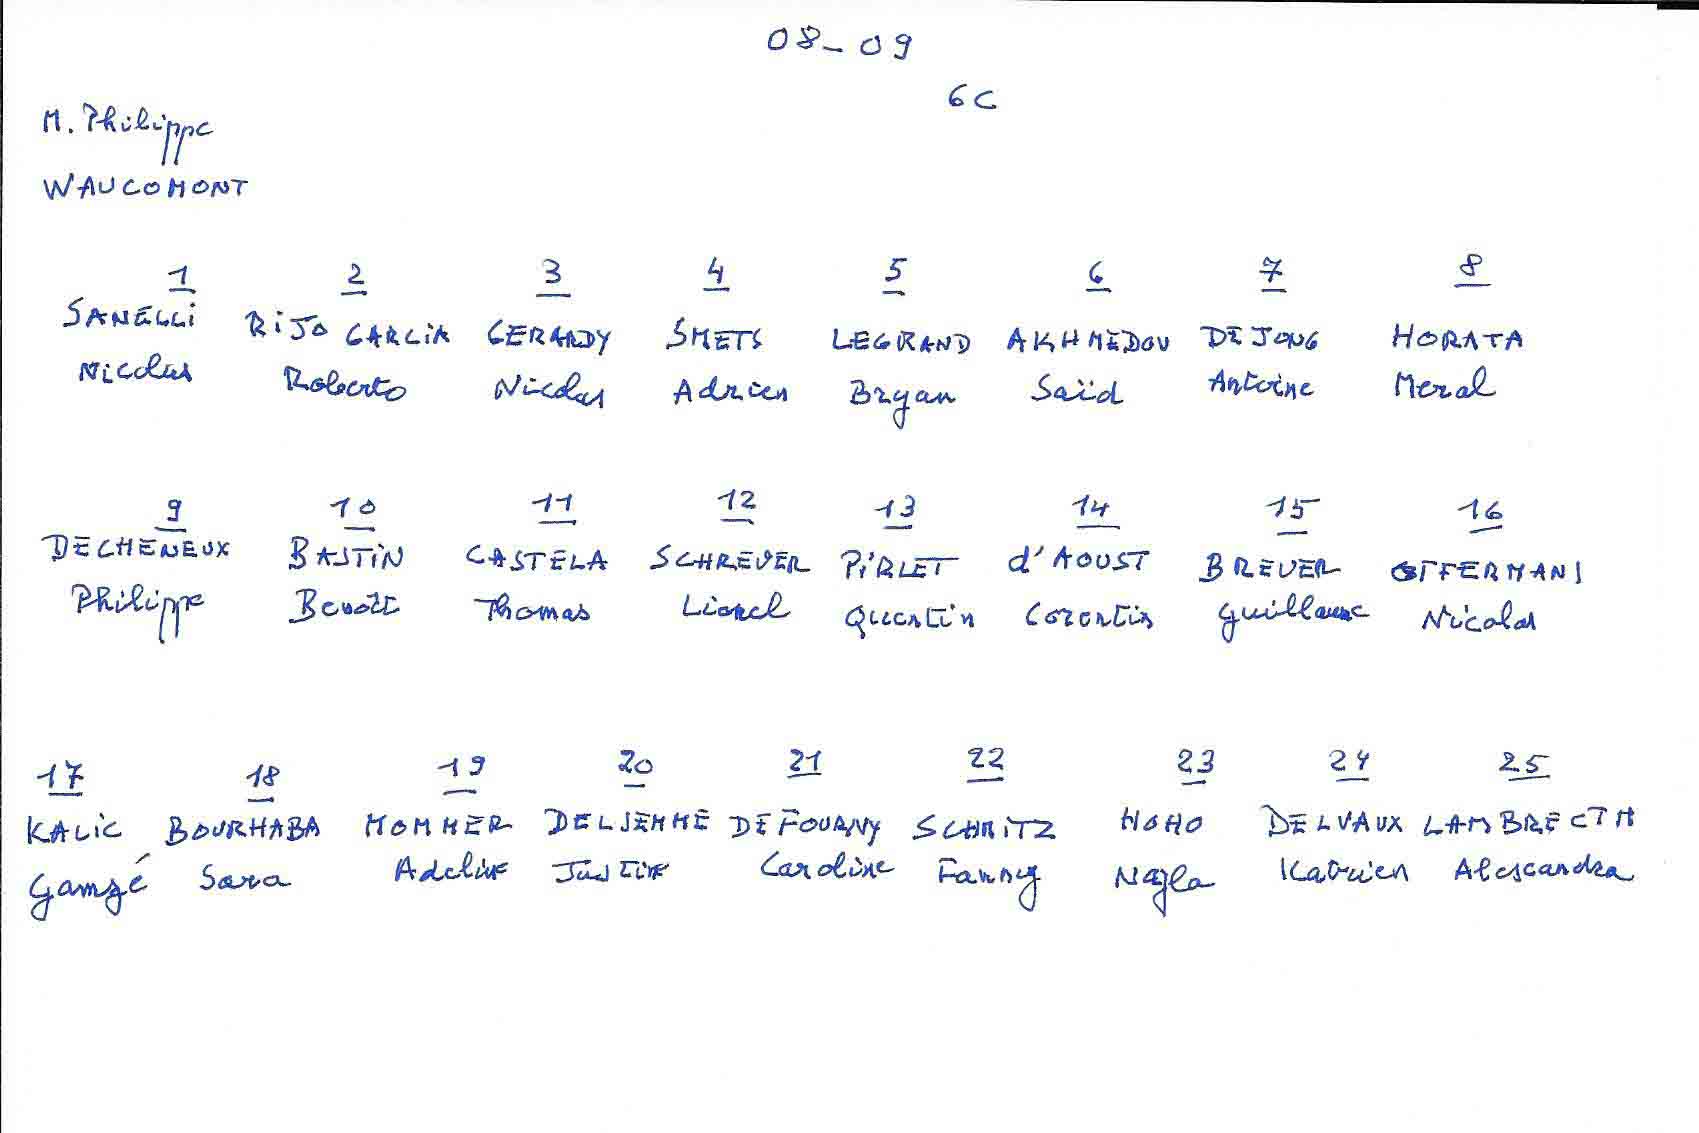 08-09
6C
M. Philippe
WAUCOMONT
1 2 3 4 5 6 7 8
SANELLI RIJO GARCIA GERARDY SMETS LEGRAND AKHMEDOV DEJONG HORATA
Nicolas Roberto Nicolas Adrien Bryan Saïd Antoine Meral
9 10 11 12 13 14 15 16
DECHENEUX BASTIN CASTELA SCHREUER PIRLET d'AOUST BREUER OFFERMANS
Philippe Benoît Thomas Lionel Quentin Corentin Guillaume Nicolas
17 18 19 20 21 22 23 24 25
KALIC BOURHABA MOMMER DELJEMME DEFOURNY SCHMITZ HOHO DELVAUX LAMBRECTH
Gamzé Sara Adeline Justine Caroline Fanny Najla Katrien Alescandra